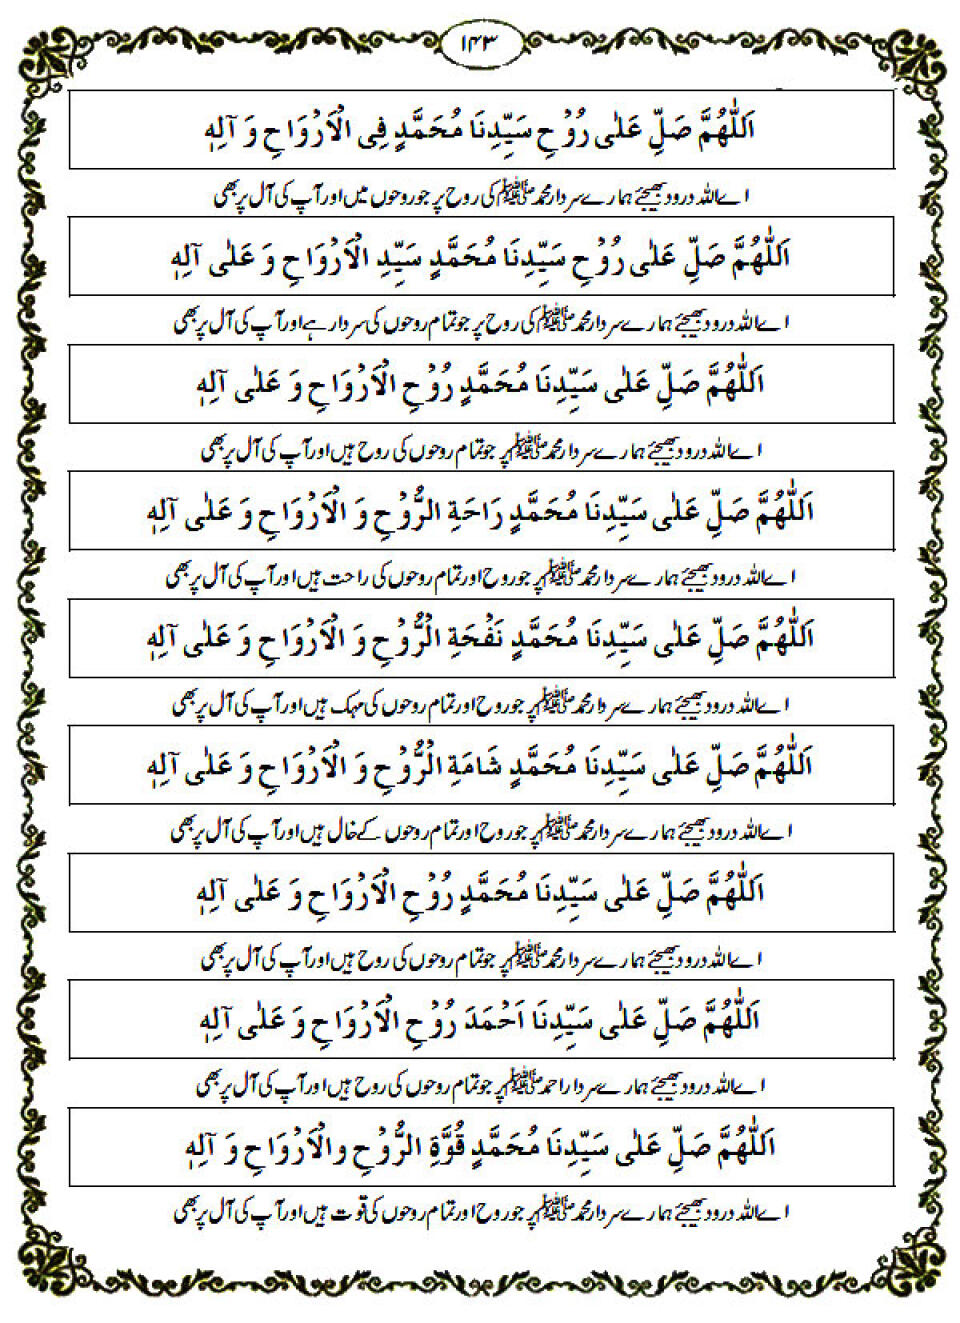 ۱۴۳
اَللّٰهُمَّ صَلِّ عَلٰی رُوْحِ سَيِّدِنَا مُحَمَّدٍ فِی الْاَرْوَاحِ وَ آلِهٖ
اے اللہ درود بھیجئے ہمارے سردار محمد ﷺ کی روح پر جو روحوں میں اور آپ کی آل پر بھی
اَللّٰهُمَّ صَلِّ عَلٰی رُوْحِ سَيِّدِنَا مُحَمَّدٍ سَيِّدِ الْاَرْوَاحِ وَ عَلٰی آلِهٖ
اے اللہ درود بھیجئے ہمارے سردار محمد ﷺ کی روح پر جو تمام روحوں کی سردار ہے اور آپ کی آل پر بھی
اَللّٰهُمَّ صَلِّ عَلٰی سَيِّدِنَا مُحَمَّدٍ رُوْحِ الْاَرْوَاحِ وَ عَلٰی آلِهٖ
اے اللہ درود بھیجئے ہمارے سردار محمد ﷺ پر جو تمام روحوں کی روح ہیں اور آپ کی آل پر بھی
اَللّٰهُمَّ صَلِّ عَلٰی سَيِّدِنَا مُحَمَّدٍ رَاحَةِ الرُّوْحِ وَ الْاَرْوَاحِ وَ عَلٰی آلِهٖ
اے اللہ درود بھیجئے ہمارے سردار محمد ﷺ پر جو روح اور تمام روحوں کی راحت ہیں اور آپ کی آل پر بھی
اَللّٰهُمَّ صَلِّ عَلٰی سَيِّدِنَا مُحَمَّدٍ نَفْحَةِ الْرُّوْحِ وَ الْاَرْوَاحِ وَ عَلٰی آلِهٖ
اے اللہ درود بھیجئے ہمارے سردار محمد ﷺ پر جو روح اور تمام روحوں کی مہک ہیں اور آپ کی آل پر بھی
اَللّٰهُمَّ صَلِّ عَلٰی سَيِّدِنَا مُحَمَّدٍ شَامَةِ الْرُّوْحِ وَ الْاَرْوَاحِ وَ عَلٰی آلِهٖ
اے اللہ درود بھیجئے ہمارے سردار محمد ﷺ پر جو روح اور تمام روحوں کے خال ہیں اور آپ کی آل پر بھی
اَللّٰهُمَّ صَلِّ عَلٰی سَيِّدِنَا مُحَمَّدٍ رُوْحِ الْاَرْوَاحِ وَ عَلٰی آلِهٖ
اے اللہ درود بھیجئے ہمارے سردار محمد ﷺ پر جو تمام روحوں کی روح ہیں اور آپ کی آل پر بھی
اَللّٰهُمَّ صَلِّ عَلٰی سَيِّدِنَا اَحْمَدَ رُوْحِ الْاَرْوَاحِ وَ عَلٰی آلِهٖ
اے اللہ درود بھیجئے ہمارے سردار احمد ﷺ پر جو تمام روحوں کی روح ہیں اور آپ کی آل پر بھی
اَللّٰهُمَّ صَلِّ عَلٰی سَيِّدِنَا مُحَمَّدٍ قُوَّةِ الرُّوْحِ والْاَرْوَاحِ وَ آلِهٖ
اے اللہ درود بھیجئے ہمارے سردار محمد ﷺ پر جو روح اور تمام روحوں کی قوت ہیں اور آپ کی آل پر بھی